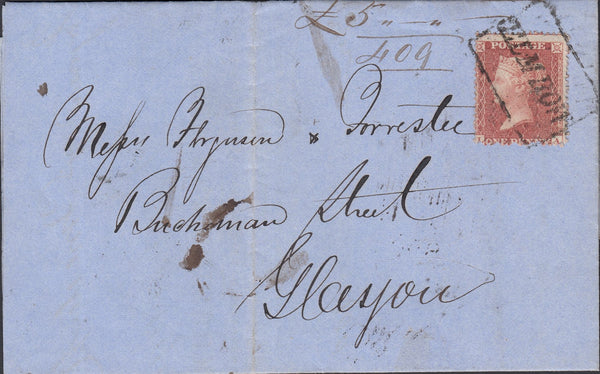 £ 5 " - " -
409
POSTAGE
ONE PENNY
Messrs Ferguson & Forrester
Buchanan Street
Glasgow